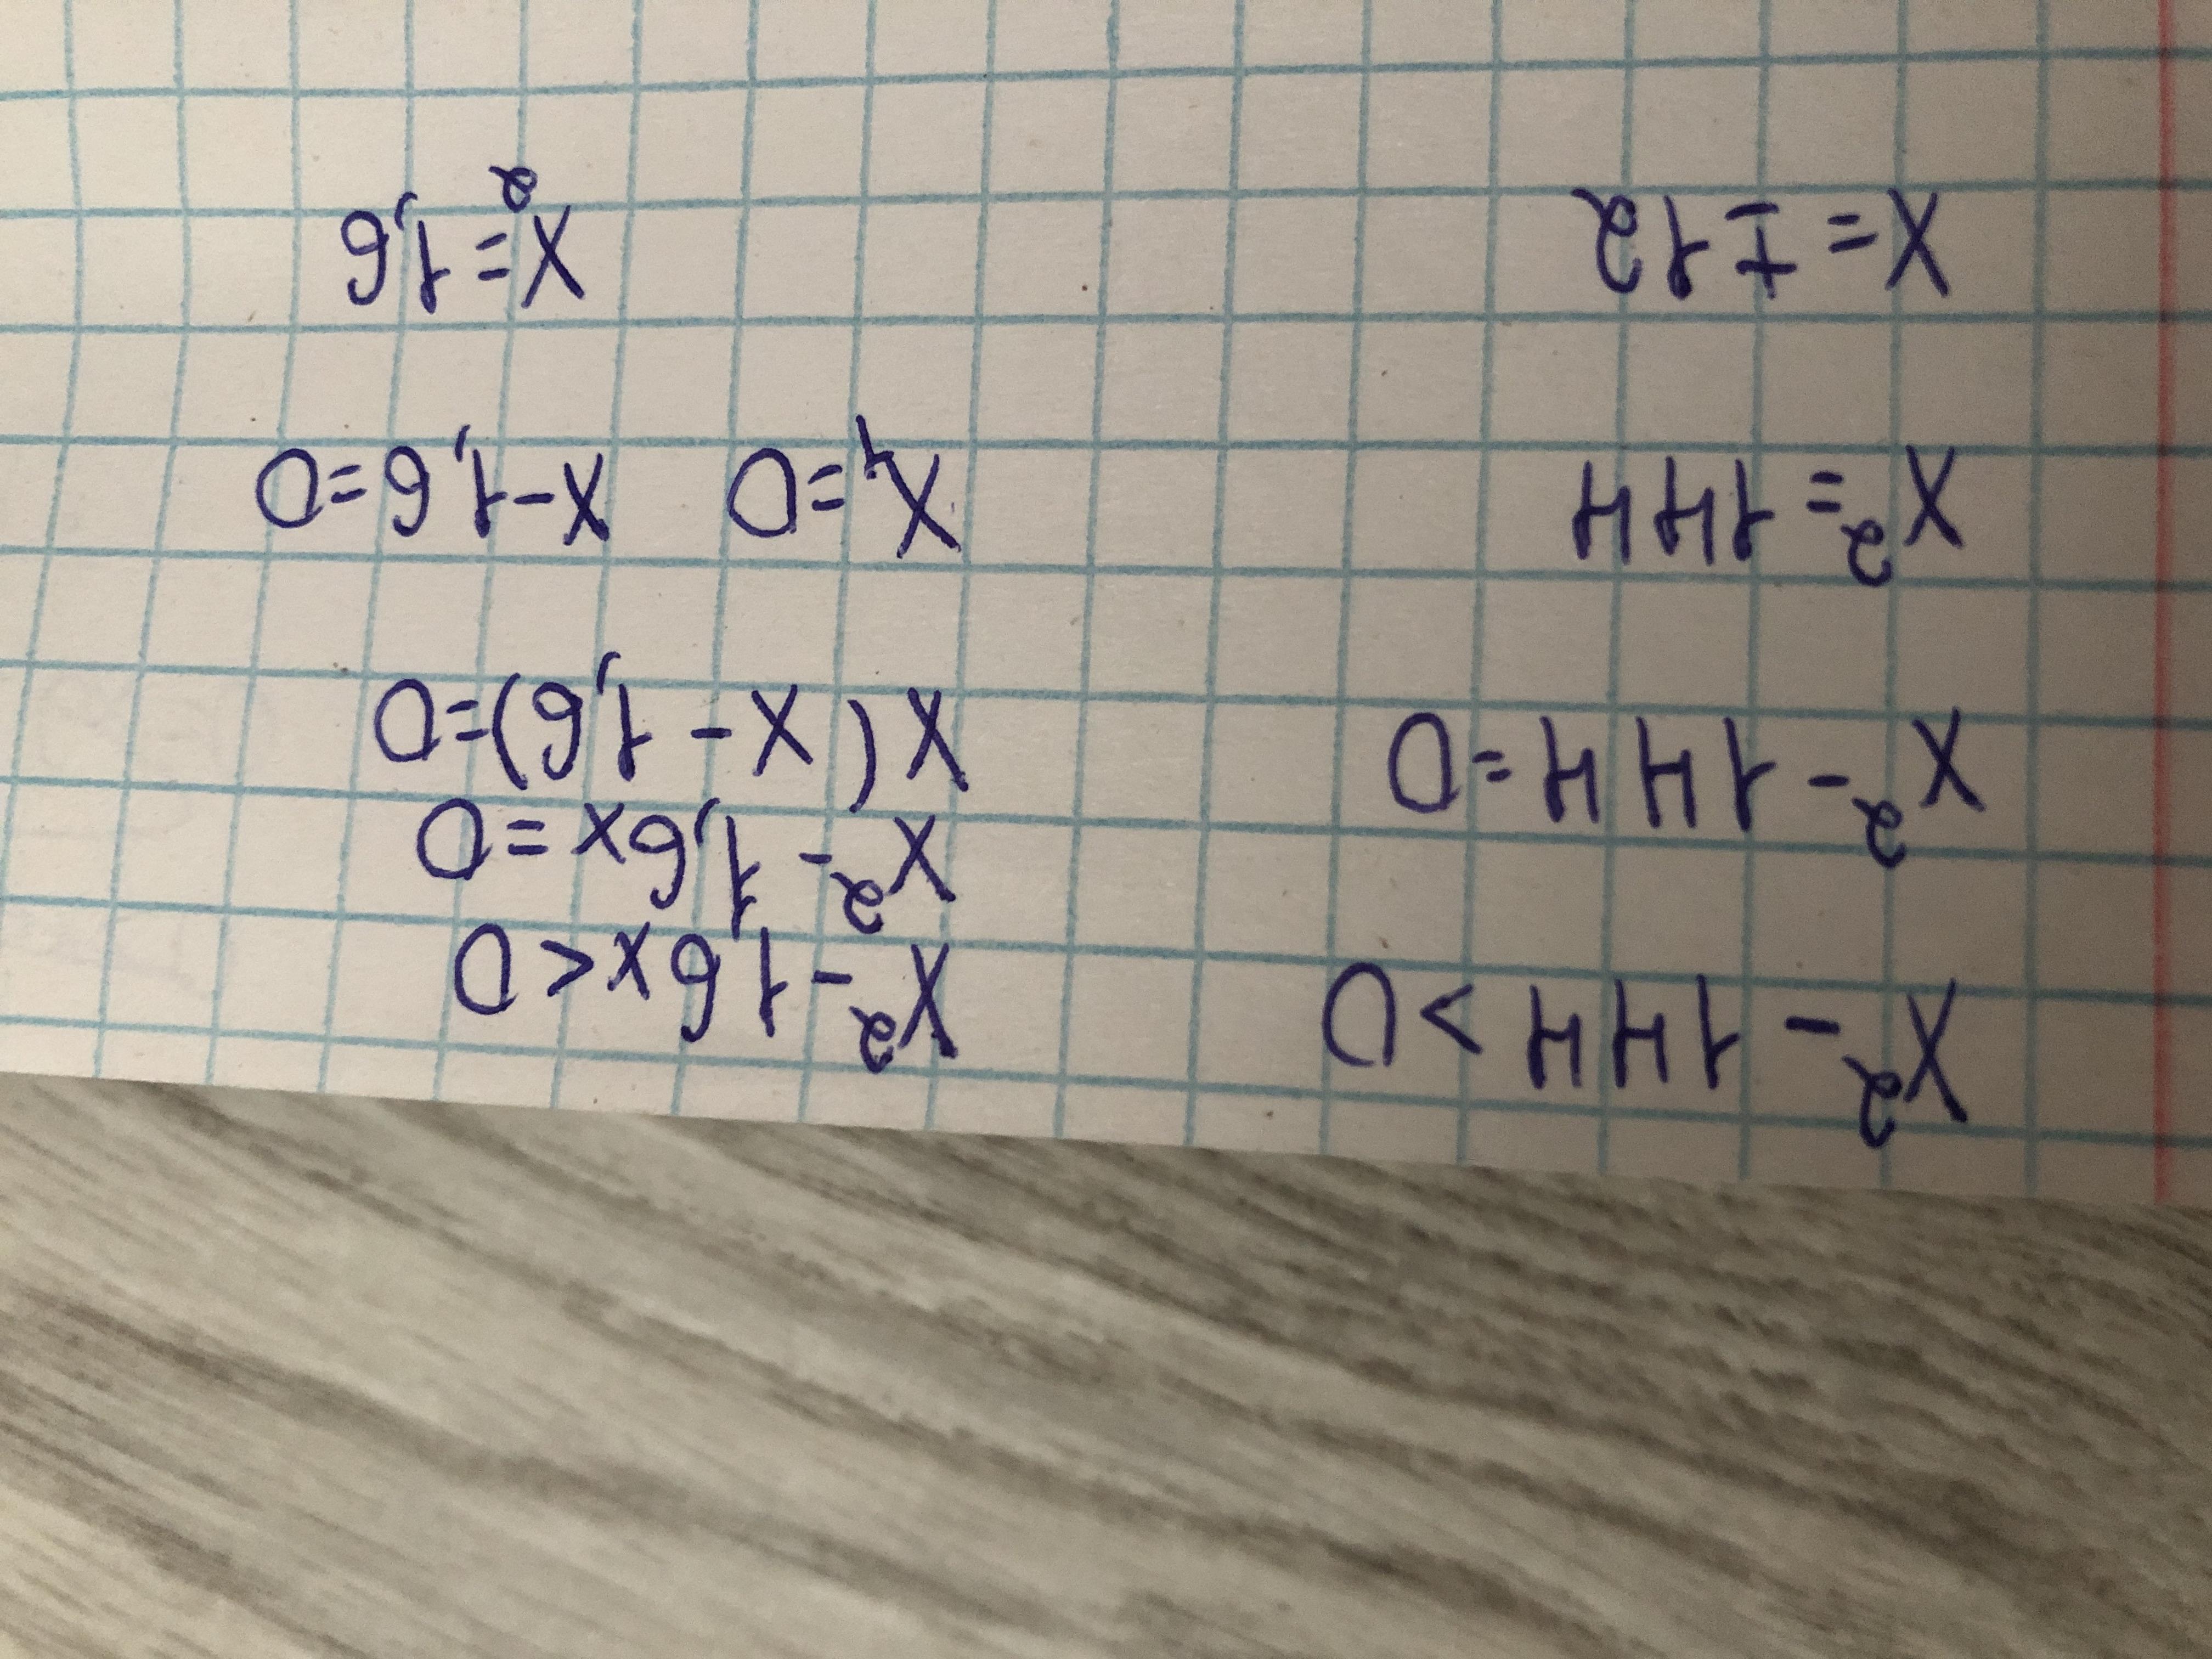 x²-144>0
x²-144=0
x²=144
x=±12
x²-1,6x<0
x²-1,6x=0
x(x-1,6)=0
x₁=0 x-1,6=0
x₂=1,6